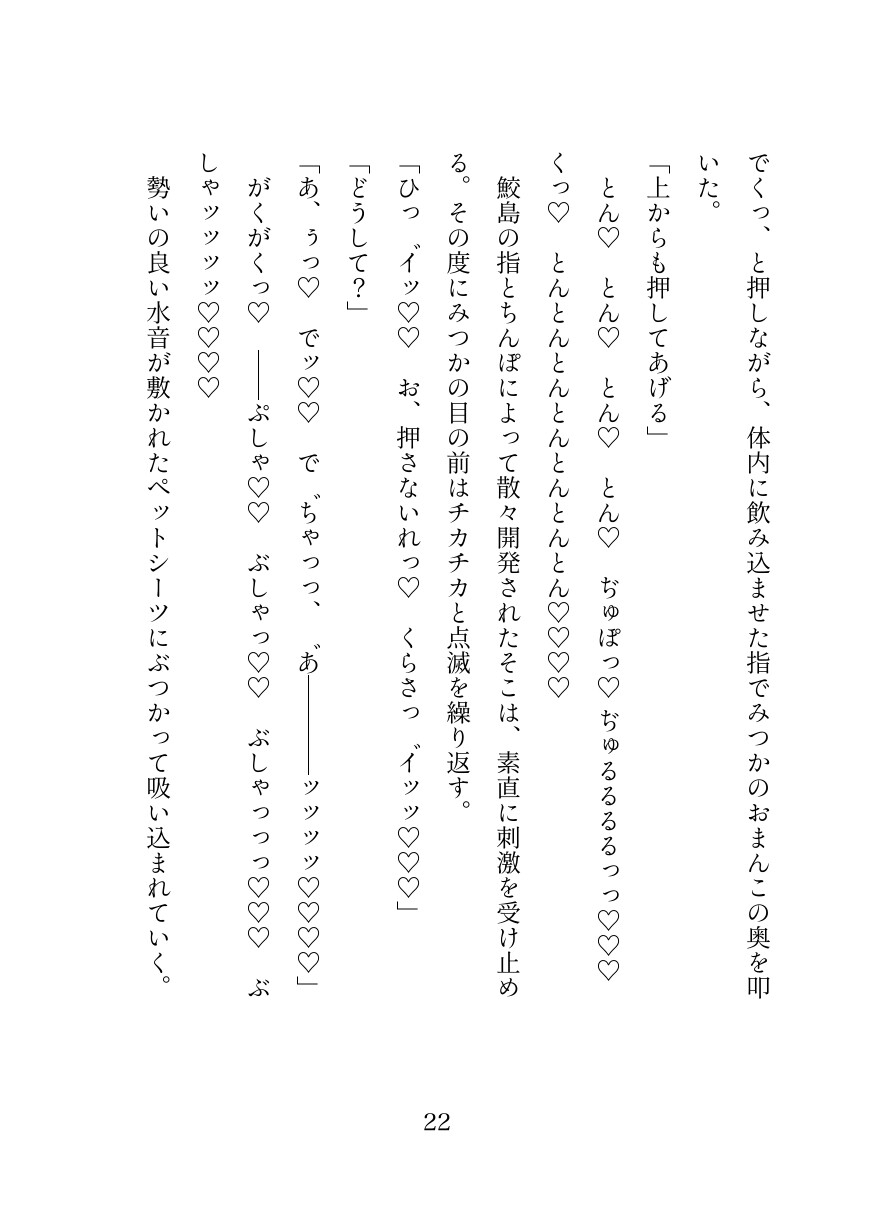 でくっ、と押しながら、体内に飲み込ませた指でみつかのおまんこの奥を叩
いた。
「上からも押してあげる」
　とん♡　とん♡　とん♡　とん♡　ぢゅぽっ♡ぢゅるるるるっっ♡♡♡
くっ♡　とんとんとんとんとんとんとん♡♡♡♡
　鮫島の指とちんぽによって散々開発されたそこは、素直に刺激を受け止め
る。その度にみつかの目の前はチカチカと点滅を繰り返す。
「ひっ　イ゛ッ♡♡　お、押さないれっ♡　くらさっ　イ゛ッッ♡♡♡」
「どうして？」
「あ、ぅっ♡　でッ♡♡　で　ぢ゛ゃっっ、　あ゛――――ッッッッ♡♡♡♡」
　がくがくっ♡　――ぷしゃ♡♡　ぶしゃっ♡♡　ぶしゃっっっ♡♡♡　ぶ
しゃッッッッ♡♡♡♡
　勢いの良い水音が敷かれたペットシーツにぶつかって吸い込まれていく。
22